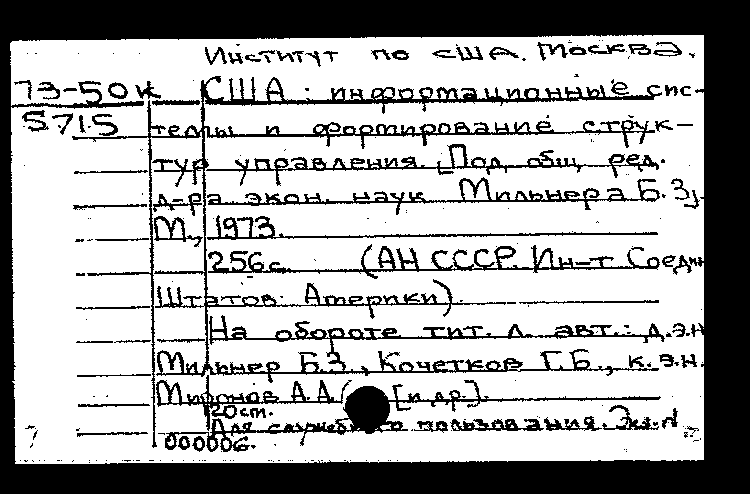 Институт по США. Москва.
73-50к США : информационные сис-
5715 темы и формирование струк-
тур управления. [Под общ. ред.
д-ра экон. наук Мильнера Б.З].
М., 1973.
256с. (АН СССР. Ин-т Соедин
Штатов Америки).
На обороте тит. л. авт.: д.э.н
Мильнер Б.З., Кочетков Г.Б., к.э.н.
Миронов А.А. [и др.].
20 ст.
Для служебного пользования. Экз. №
000006.